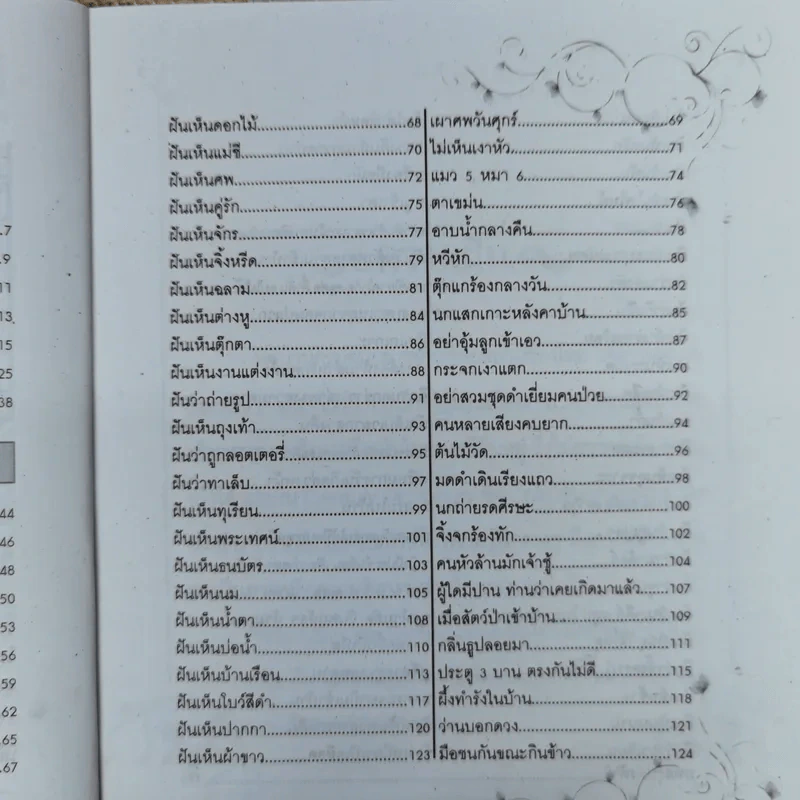 ฝันเห็นดอกไม้ 68
ฝันเห็นแม่ชี 70
ฝันเห็นศพ 72
ฝันเห็นคู่รัก 75
ฝันเห็นจักร 77
ฝันเห็นจิ้งหรีด 79
ฝันเห็นฉลาม 81
ฝันเห็นต่างหู 84
ฝันเห็นตุ๊กตา 86
ฝันเห็นงานแต่งงาน 88
ฝันว่าถ่ายรูป 91
ฝันเห็นถุงเท้า 93
ฝันว่าถูกลอตเตอรี่ 95
ฝันว่าทาเล็บ 97
ฝันเห็นทุเรียน 99
ฝันเห็นพระเทศน์ 101
ฝันเห็นธนบัตร 103
ฝันเห็นนม 105
ฝันเห็นน้ำตา 108
ฝันเห็นบ่อน้ำ 110
ฝันเห็นบ้านเรือน 113
ฝันเห็นโบว์สีดำ 117
ฝันเห็นปากกา 120
ฝันเห็นผ้าขาว 123
เผาศพวันศุกร์ 69
ไม่เห็นเงาหัว 71
แมว 5 หมา 6 74
ตาเขม่น 76
อาบน้ำกลางคืน 78
หวีหัก 80
ตุ๊กแกร้องกลางวัน 82
นกแสกเกาะหลังคาบ้าน 85
อย่าอุ้มลูกเข้าเอว 87
กระจกเงาแตก 90
อย่าสวมชุดดำเยี่ยมคนป่วย 92
คนหลายเสียงคบยาก 94
ต้นไม้วัด 96
มดดำเดินเรียงแถว 98
นกถ่ายรดศีรษะ 100
จิ้งจกร้องทัก 102
คนหัวล้านมักเจ้าชู้ 104
ผู้ใดมีปาน ท่านว่าเคยเกิดมาแล้ว 107
เมื่อสัตว์ป่าเข้าบ้าน 109
กลิ่นธูปลอยมา 111
ประตู 3 บาน ตรงกันไม่ดี 115
ผึ้งทำรังในบ้าน 118
ว่านบอกดวง 121
มือชนกันขณะกินข้าว 124